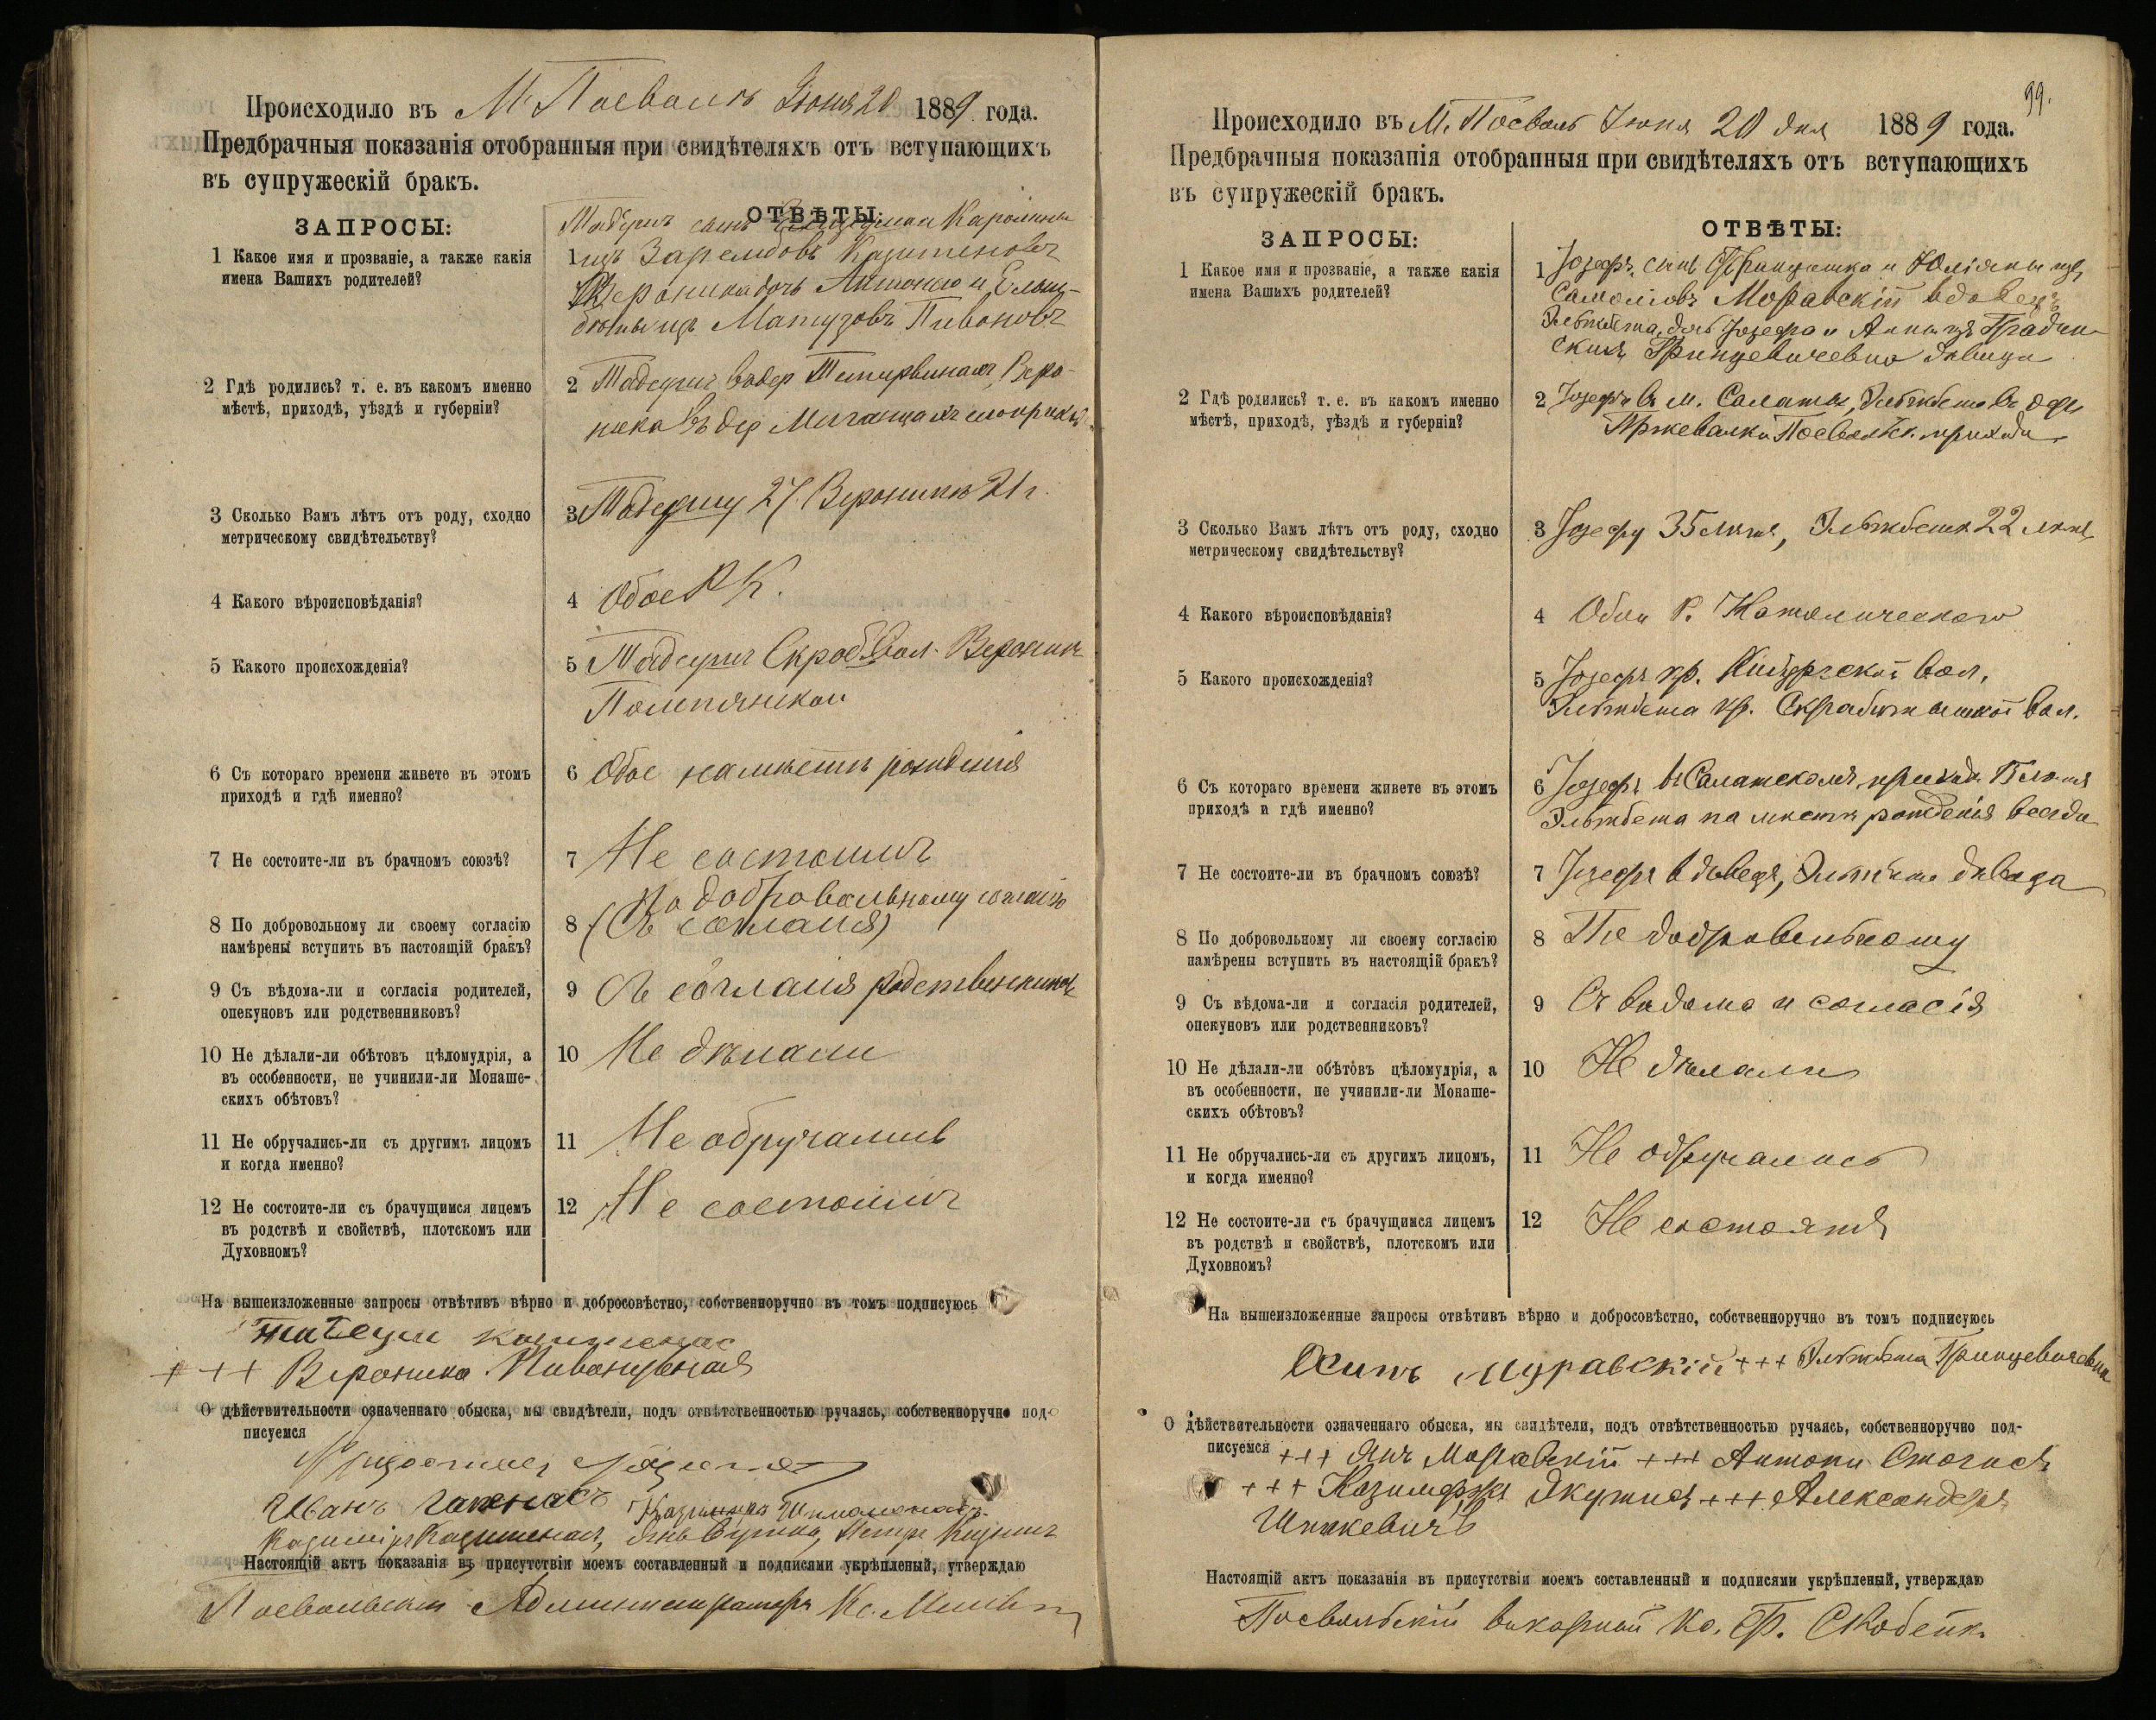 Происходило въ М. Посволь Іюня 20 1889 года.
Предбрачныя показанія отобранныя при свидѣтеляхъ отъ вступающихъ
въ супружескій бракъ.
ЗАПРОСЫ:
ОТВѢТЫ:
1 Какое имя и прозваніе, а также какія
имена Вашихъ родителей?
Тадеушъ сынъ Каролины
1 изъ Зарембовъ
Вероника дочь Антонію и Ельж-
беты изъ Матузовъ Пивоновъ
2 Гдѣ родились? т. е. въ какомъ именно
мѣстѣ, приходѣ, уѣздѣ и губерніи?
2 Тадеушъ в дер Веро-
ника въ дер
3 Сколько Вамъ лѣтъ отъ роду, сходно
метрическому свидѣтельству?
3 Тадеушу 27 Вероникѣ 21 г.
4 Какого вѣроисповѣданія?
4 Обое Р К.
5 Какого происхожденія?
5 Тадеушъ Скроб. Вол. Вероника
Помпянской
6 Съ котораго времени живете въ этомъ
приходѣ и гдѣ именно?
6 Обое на мѣстѣ рожденія
7 Не состоите-ли въ брачномъ союзѣ?
7 Не состоимъ
8 По добровольному ли своему согласію
намѣрены вступить въ настоящій бракъ?
По добровольному согласію
8 (Съ согласія)
9 Съ вѣдома-ли и согласія родителей,
опекуновъ или родственниковъ?
9 Съ согласія родственниковъ
10 Не дѣлали-ли обѣтовъ цѣломудрія, а
въ особенности, не учинили-ли Монаше-
скихъ обѣтовъ?
10 Не дѣлали
11 Не обручались-ли съ другимъ лицомъ
и когда именно?
11 Не обручались
12 Не состоите-ли съ брачущимся лицемъ
въ родствѣ и свойствѣ, плотскомъ или
Духовномъ?
12 Не состоимъ
На вышеизложенные запросы отвѣтивъ вѣрно и добросовѣстно, собственноручно въ томъ подписуюсь
+ + + Вероника
О дѣйствительности означеннаго обыска, мы свидѣтели, подъ отвѣтственностью ручаясь, собственноручно под-
писуемся
Иванъ
Казиміръ Янъ Петръ
Настоящій актъ показанія въ присутствіи моемъ составленный и подписями укрѣпленый, утверждаю
Посвольскій Администраторъ Кс.
99.
Происходило въ М. Посволь Іюня 20 дня 1889 года.
Предбрачныя показанія отобранныя при свидѣтеляхъ отъ вступающихъ
въ супружескій бракъ.
ЗАПРОСЫ:
ОТВѢТЫ:
1 Какое имя и прозваніе, а также какія
имена Вашихъ родителей?
1 Іозефъ сынъ Францишка и Юліяны изъ
Моравскій вдовецъ
Эльжбета, дочь Іозефа и Анны изъ Градин-
скихъ Гринцевичевна дѣвица
2 Гдѣ родились? т. е. въ какомъ именно
мѣстѣ, приходѣ, уѣздѣ и губерніи?
2 Іозефъ в м. Салаты, Эльжбета в
Посвольск. прихода
3 Сколько Вамъ лѣтъ отъ роду, сходно
метрическому свидѣтельству?
3 Іозефу 35 лѣтъ, Эльжбета 22 лѣтъ
4 Какого вѣроисповѣданія?
4 Обои Р. Католическаго
5 Какого происхожденія?
5 Іозефъ кр. вол,
Эльжбета кр. вол.
6 Съ котораго времени живете въ этомъ
приходѣ и гдѣ именно?
6 Іозефъ в Салатскомъ приходѣ
Эльжбета на мѣстѣ рожденія всегда
7 Не состоите-ли въ брачномъ союзѣ?
7 Іозефъ вдовецъ, Эльжбета дѣвица
8 По добровольному ли своему согласію
намѣрены вступить въ настоящій бракъ?
8 По добровольному
9 Съ вѣдома-ли и согласія родителей,
опекуновъ или родственниковъ?
9 Съ вѣдома и согласія
10 Не дѣлали-ли обѣтовъ цѣломудрія, а
въ особенности, не учинили-ли Монаше-
скихъ обѣтовъ?
10 Не дѣлали
11 Не обручались-ли съ другихъ лицомъ,
и когда именно?
11 Не обручались
12 Не состоите-ли съ брачущимся лицемъ
въ родствѣ и свойствѣ, плотскомъ или
Духовномъ?
12 Не состоятъ
На вышеизложенные запросы отвѣтивъ вѣрно и добросовѣстно, собственноручно въ томъ подписуюсь
Осипъ Муравскій +++ Эльжбета Гринцевичевна
О дѣйствительности означеннаго обыска, мы свидѣтели, подъ отвѣтственностью ручаясь, собственноручно под-
писуемся +++ Янъ Моравскій +++ Антони
+++ Казимеръ +++ Александеръ
Шпакевичъ
Настоящій актъ показанія въ присутствіи моемъ составленный и подписями укрѣпленый, утверждаю
Посвольскій викарный Кс. Ф.